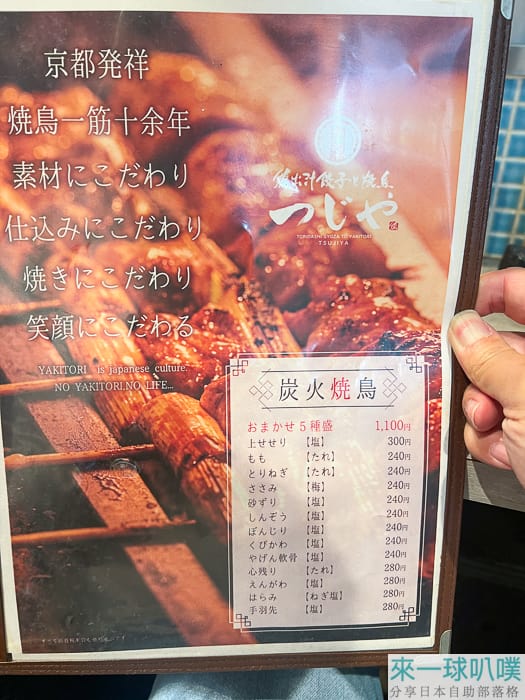 京都発祥
焼鳥一筋十余年
素材にこだわり
仕込みにこだわり
焼きにこだわり
笑顔にこだわる
YAKITORI is japanese culture.
NO YAKITORI,NO LIFE...
鶏出汁餃子と焼鳥
つじや
TORIDASHI GYOZA TO YAKITORI
TSUJIYA
炭火焼鳥
おまかせ5種盛 1,100円
上せせり 【塩】 300円
もも 【たれ】 240円
とりねぎ 【たれ】 240円
ささみ 【梅】 240円
砂ずり 【塩】 240円
しんぞう 【塩】 240円
ぼんじり 【塩】 240円
くびかわ 【塩】 240円
やげん軟骨 【塩】 240円
心残り 【たれ】 280円
えんがわ 【塩】 280円
はらみ 【ねぎ塩】 280円
手羽先 【塩】 280円
來一球叭噗
分享日本自助部落格